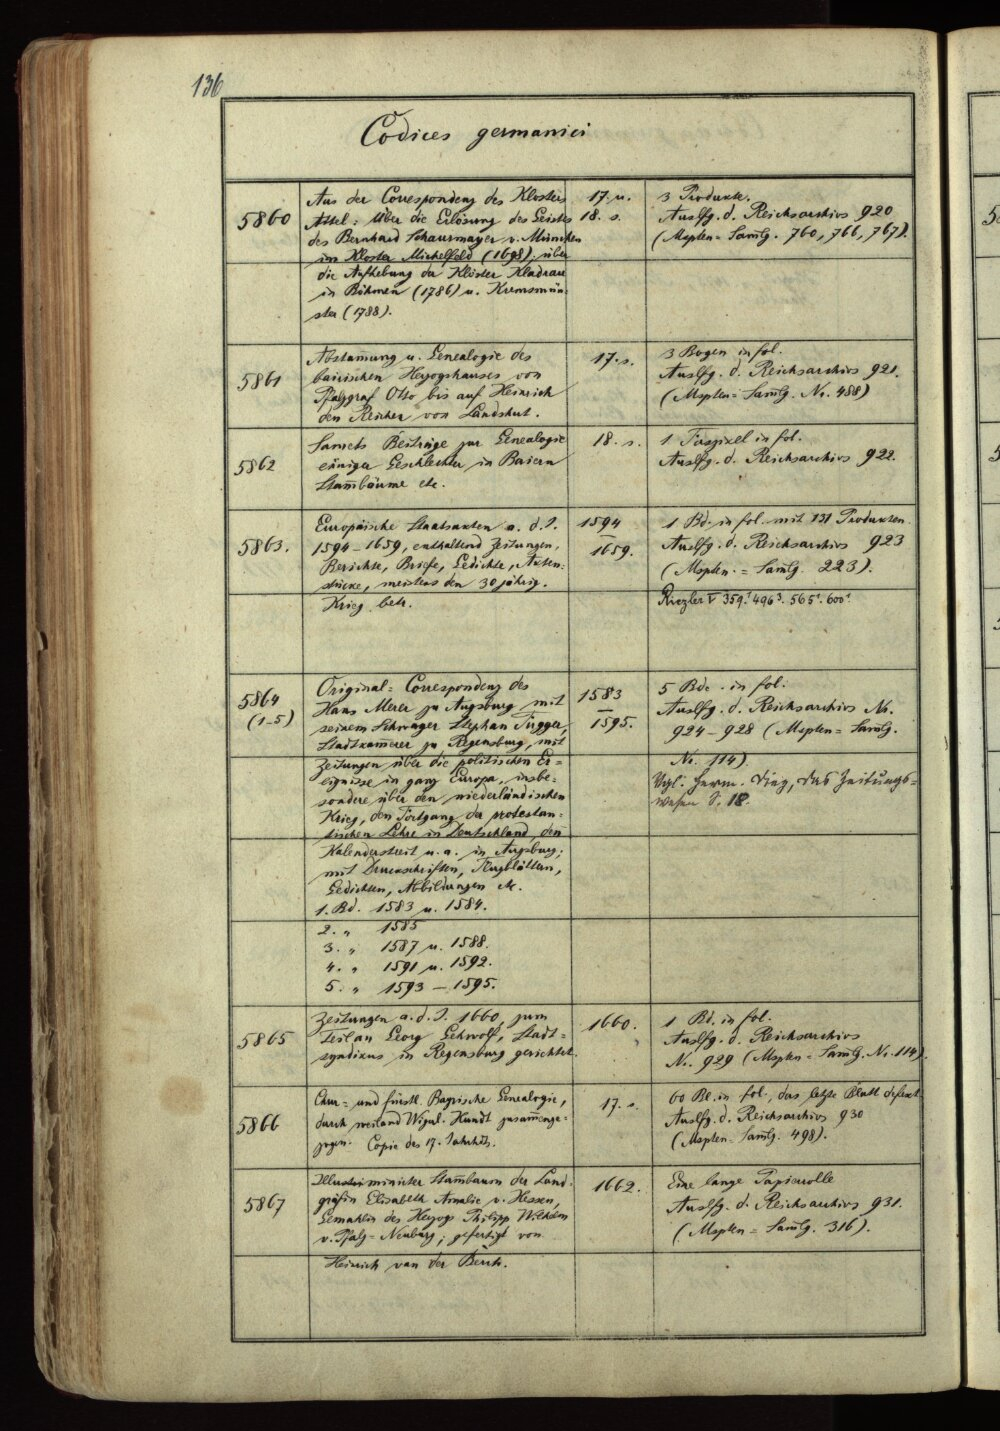 136
Codices germanici
5860
Aus der Correspondenz des Klosters
Attel: Über die Erlösung des Geistes
des Bernhard Schaurmayer v. München
im Kloster Michelfeld (1698); über
die Aufhebung der Klöster Kladrau
in Böhmen (1786) u. Kremsmün-
ster (1788).
17. u.
18. s.
3 Produkte.
Auslfg. d. Reichsarchivs 920
(Mspten-Samlg. 760, 766, 767).
5861
Abstam̄ung u. Genealogie des
bairischen Herzogshauses von
Pfalzgraf Otto bis auf Heinrich
den Reichen von Landshut.
17. s.
3 Bogen in fol.
Auslfg. d. Reichsarchivs 921.
(Mspten-Samlg. Nr. 488)
5862
Beiträge zur Genealogie
einiger Geschlechter in Baiern
Stam̄bäume etc.
18. s.
1 Faszikel in fol.
Auslfg. d. Reichsarchivs 922.
5863.
Europäische Staatsakten a. d. J.
1594-1659, enthaltend Zeitungen,
Berichte, Briefe, Gedichte, Akten-
stücke, meistens den 30jährig.
Krieg betr.
1594
—
1659.
1 Bd. in fol. mit 131 Produkten.
Auslfg. d. Reichsarchivs 923
(Mspten.-Samlg. 223).
Riezler V 359.¹ 496³. 565¹. 600¹.
5864
(1-5)
Original-Correspondenz des
Hans Merer zu Augsburg mit
seinem Schwager Stephan Fugger,
Stadtkamerer zu Regensburg, mit
Zeitungen über die politischen Er-
eignisse in ganz Europa, insbe-
sondere über den niederländischen
Krieg, den Fortgang der protestan-
tischen Lehre in Deutschland, den
Kalenderstreit u. a. in Augsburg;
mit Druckschriften, Flugblättern,
Gedichten, Abbildungen etc.
1. Bd. 1583 u. 1584.
2. " 1585
3. " 1587 u. 1588.
4. " 1591 u. 1592.
5. " 1593-1595.
1583
—
1595.
5 Bde. in fol.
Auslfg. d. Reichsarchivs Nr.
924-928 (Mspten-Samlg.
Nr. 114).
Vgl. Herm. Diez, das Zeitungs-
wesen S. 18.
5865
Zeitungen a. d. J. 1660, zum
Teil an Georg Gehwolf, Stadt-
syndikus in Regensburg gerichtet.
1660.
1 Bd. in fol.
Auslfg. d. Reichsarchivs
Nr. 929 (Mspten-Samlg. Nr. 114).
5866
Chur- und fürstl. Bayrische Genealogie,
durch weiland Wigul. Hundt zusam̄enge-
zogen. Copie des 17. Jahrhdts.
17. s.
60 Bl. in fol., das letzte Blatt defect.
Auslfg. d. Reichsarchivs 930
(Mspten-Samlg. 498).
5867
Illustriminirter Stam̄baum der Land-
gräfin Elisabeth Amalie v. Hessen,
Gemahlin des Herzogs Philipp Wilhelm
v. Pfalz-Neuburg; gefertigt von
Heinrich van der Berch.
1662.
Eine lange Papierrolle
Auslfg. d. Reichsarchivs 931.
(Mspten-Samlg. 316).